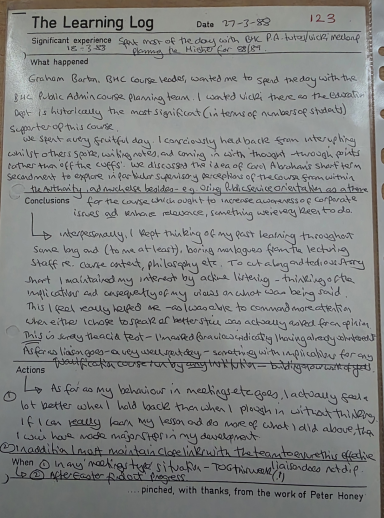 The Learning Log
Date 27-3-88
123
Significant experience Spent most of the day with BHC P.A. tutor/Vicki
18-3-88 planning the Higher for 88/89
What happened
Graham Barton, BHC course leader, wanted me to spend the day with the
BHC Public Admin course planning team. I wanted Vicki there as the Education
Dept is historically the most significant (in terms of numbers of students)
supporter of this course.
We spent a very fruitful day. I consciously held back from interrupting
whilst others spoke, writing notes, and coming in with thought through points
rather than off the cuffs. We discussed the idea of Carol Abrahams short term
secondment to explore in particular supervisory perceptions of the course from within
the Authority, and much else besides - e.g. Using Public service orientation as a theme
Conclusions for the course which ought to increase awareness of corporate
issues and enhance relevance, something we're very keen to do.
Interpersonally, I kept thinking of my past learning throughout
some long and (to me at least), boring monologues from the lecturing
staff re. course content, philosophy etc. To cut a long and tedious story
short I maintained my interest by active listening - thinking of the
implications and consequently of my views on what was being said.
This I feel really helped me - as I was able to command more attention
when either I chose to speak or better still was actually asked for an opinion.
This is surely the acid test - I'm asked for a view indicating I have
As far as liaison goes - a very well spent day - something with implications for any
qualification course run by any institution -
Actions
As far as my behaviour in meetings etc goes, I actually feel a
① lot better when I hold back than when I plough in without thinking.
If I can really learn my lesson and do more of what I did above, then
I will have made major steps in my development
② In addition I must maintain close links with the team to ensure this effective
liaison does not dip.
When ① In any meetings type situation - TOG this week (!)
② After Easter find out progress
....pinched, with thanks, from the work of Peter Honey